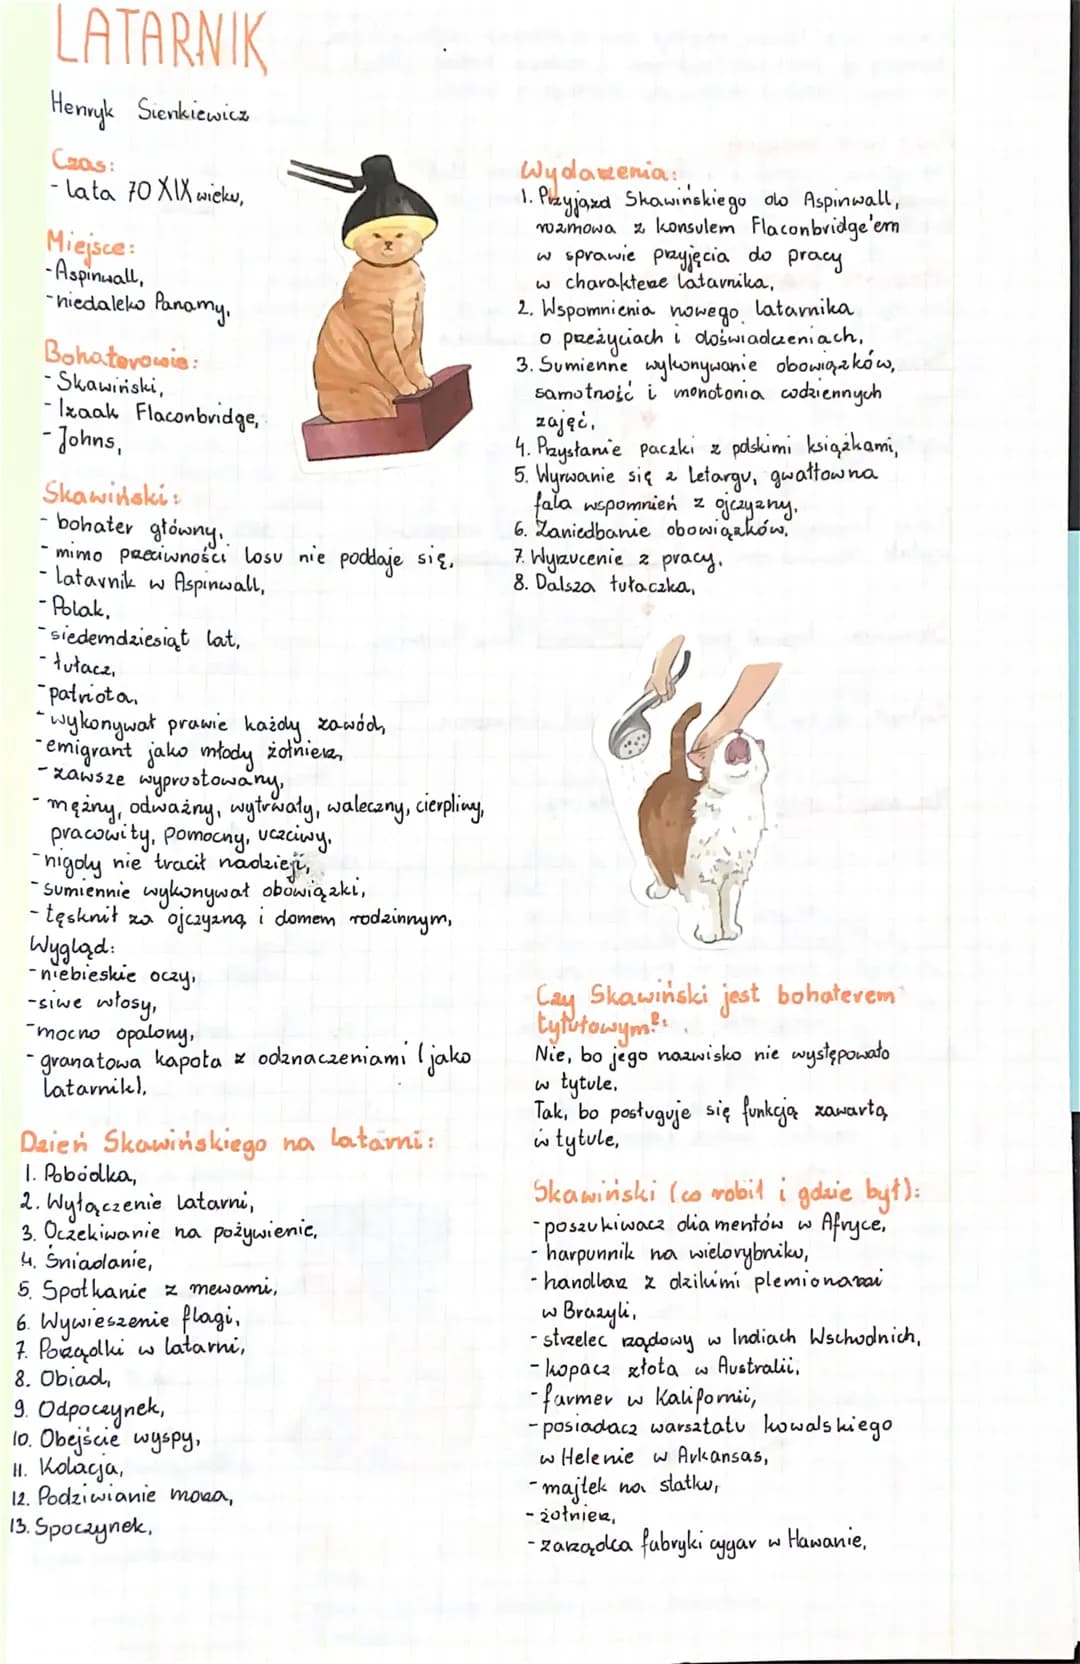 LATARNIK
Henryk Sienkiewicz
Czas:
- lata 70 XIX wieku,
Miejsce:
- Aspinwall,
- niedaleko Panamy,
Bohaterowie:
- Skawiński,
- Izaak Flaconbridge,
- Johns,
Skawiński:
- bohater główny,
- mimo przeciwności losu nie poddaje się,
- latarnik w Aspinwall,
- Polak,
- siedemdziesiąt lat,
- tułacz,
- patriota,
- wykonywał prawie każdy zawód,
- emigrant jako młody żołnierz,
- zawsze wyprostowany,
- mężny, odważny, wytrwały, waleczny, cierpliwy,
pracowity, pomocny, uczciwy,
- nigdy nie tracił nadzieji,
- sumiennie wykonywał obowiązki,
- tęsknił za ojczyzną i domem rodzinnym,
Wygląd:
- niebieskie oczy,
- siwe włosy,
- mocno opalony,
- granatowa kapota z odznaczeniami (jako
latarnik),
Dzień Skawińskiego na latarni:
1. Pobódka,
2. Wyłączenie latarni,
3. Oczekiwanie na pożywienie,
4. Śniadanie,
5. Spotkanie z mewami,
6. Wywieszenie flagi,
7. Porządki w latarni,
8. Obiad,
9. Odpoczynek,
10. Obejście wyspy,
11. Kolacja,
12. Podziwianie morza,
13. Spoczynek,
Wydarzenia:
1. Przyjazd Skawińskiego do Aspinwall,
rozmowa z konsulem Flaconbridge'em
w sprawie przyjęcia do pracy
w charakterze latarnika,
2. Wspomnienia nowego latarnika
o przeżyciach i doświadczeniach,
3. Sumienne wykonywanie obowiązków,
samotność i monotonia codziennych
zajęć,
4. Przysłanie paczki z polskimi książkami,
5. Wyrwanie się z letargu, gwałtowna
fala wspomnień z ojczyzny,
6. Zaniedbanie obowiązków,
7. Wyrzucenie z pracy,
8. Dalsza tułaczka,
Czy Skawiński jest bohaterem
tytułowym?:
Nie, bo jego nazwisko nie występowało
w tytule,
Tak, bo posługuje się funkcją zawartą
w tytule,
Skawiński (co robił i gdzie był):
- poszukiwacz diamentów w Afryce,
- harpunnik na wielorybniku,
- handlarz z dzikimi plemionami
w Brazyli,
- strzelec rządowy w Indiach Wschodnich,
- kopacz złota w Australii,
- farmer w Kalifornii,
- posiadacz warsztatu kowalskiego
w Helenie w Arkansas,
- majtek na statku,
- żołnierz,
- zarządca fabryki cygar w Hawanie,